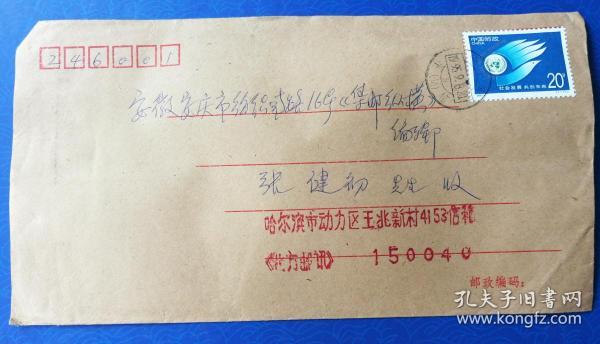 246001
中国邮政
CHINA
社会发展 共创未来
20分
安徽安庆市纺织南路16号《集邮纵横》
编辑部
张健初 先生 收
哈尔滨市动力区王兆新村4153信箱
《北方邮讯》 150040
邮政编码：
孔夫子旧书网
www.kongfz.com